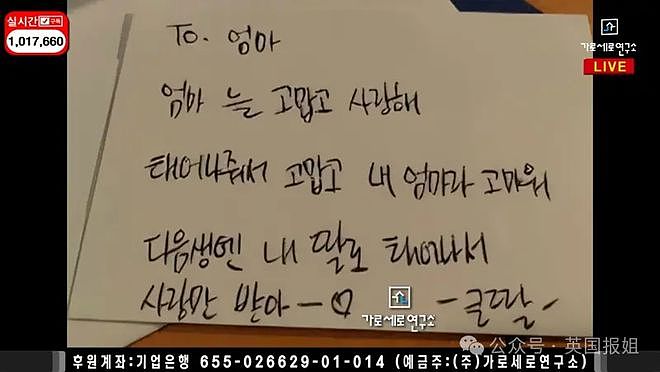 실시간 구독
1,017,660
가로세로연구소
LIVE
To. 엄마
엄마 늘 고맙고 사랑해
태어나줘서 고맙고 내 엄마라 고마워
다음생엔 내 딸로 태어나서
사랑만 받아 - ♡
- 큰딸 -
가로세로연구소
公众号 · 英国报姐
후원계좌:기업은행 655-026629-01-014 (예금주:(주)가로세로연구소)